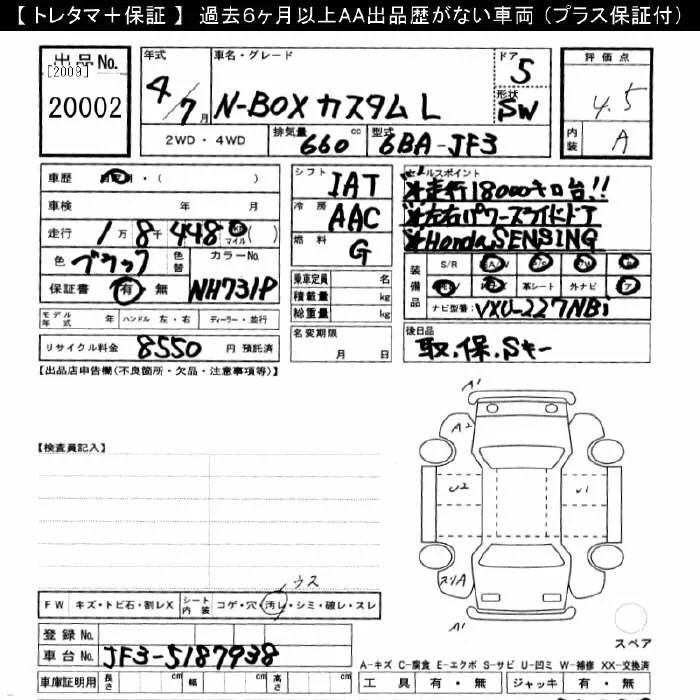 【トレタマ＋保証】 過去6ヶ月以上AA出品歴がない車両（プラス保証付）
出品No. [2009] 20002
年式 4/7月 車名・グレード N-BOX カスタム L ドア 5 形状 SW
2WD・4WD 排気量 660 cc 型式 6BA-JF3
評価点 4.5
内装 A
車歴 ・( )
車検 年 月
走行 1万8千448 マイル ( )
色 ブラック 色替 カラーNo. NH731P
保証書 有・無
モデル年式 年 ハンドル 左・右 ディーラー・並行
リサイクル料金 8550 円 預託済
シフト IAT
冷房 AAC
燃料 G
乗車定員 名
積載量 kg
総重量 kg
名変期限 月 日
セールスポイント
※走行18000キロ台!!
※左右パワースライドドア
※Honda SENSING
装備品 S/R 革シート 外ナビ
ナビ型番: VXU-227NBi
後日品
取.保.Sキー
【出品店申告欄(不良箇所・欠品・注意事項等)】
【検査員記入】
A1
A2
U2
U1
スリA
A1
スペア
ウス
FW キズ・トビ石・割レX シート内装 コゲ・穴・汚レ・シミ・破レ・スレ
登録No.
車台No. JF3-5187938
車庫証明用 長さ cm 幅 cm 高さ cm
A-キズ C-腐食 E-エクボ S-サビ U-凹ミ W-補修 XX-交換済
工具 有・無 ジャッキ 有・無